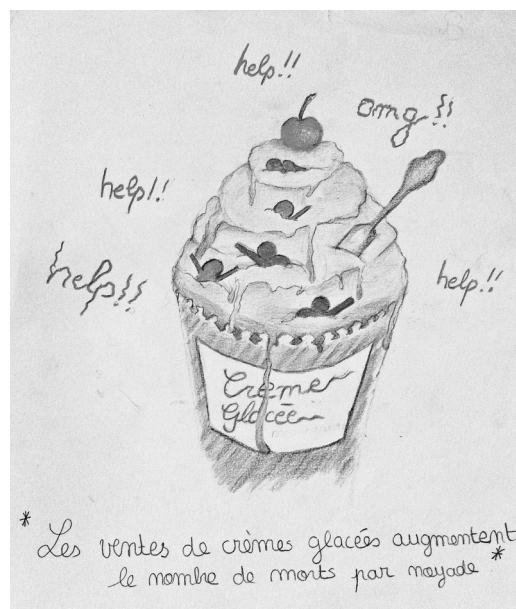 help!!
omg!!
help!!
help!!
help!!
Crème
Glacée
* Les ventes de crèmes glacées augmentent
le nombre de morts par noyade *